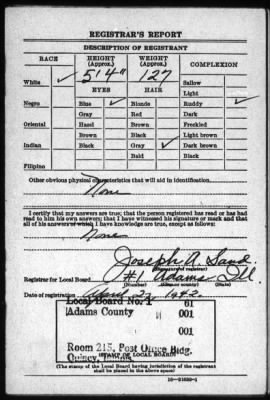 REGISTRAR'S REPORT
DESCRIPTION OF REGISTRANT
RACE HEIGHT (Approx.) WEIGHT (Approx.) COMPLEXION
White ✓ 5'4" 127 Sallow
EYES HAIR Light
Negro Blue ✓ Blonde Ruddy ✓
Gray Red Dark
Oriental Hazel Brown Freckled
Brown Black Light brown
Indian Black Gray ✓ Dark brown
Bald Black
Filipino
Other obvious physical characteristics that will aid in identification
None
I certify that my answers are true; that the person registered has read or has had
read to him his own answers; that I have witnessed his signature or mark and that
all of his answers of which I have knowledge are true, except as follows:
None
Joseph A.
(Signature of registrar)
Registrar for Local Board #1 Adams Ill.
(Number) (City or county) (State)
Date of registration April 1942
Local Board No. 1 61
Adams County 001
001
Room 215, Post Office Bldg.
Quincy, Illinois
(STAMP OF LOCAL BOARD)
(The stamp of the Local Board having jurisdiction of the registrant
shall be placed in the above space)